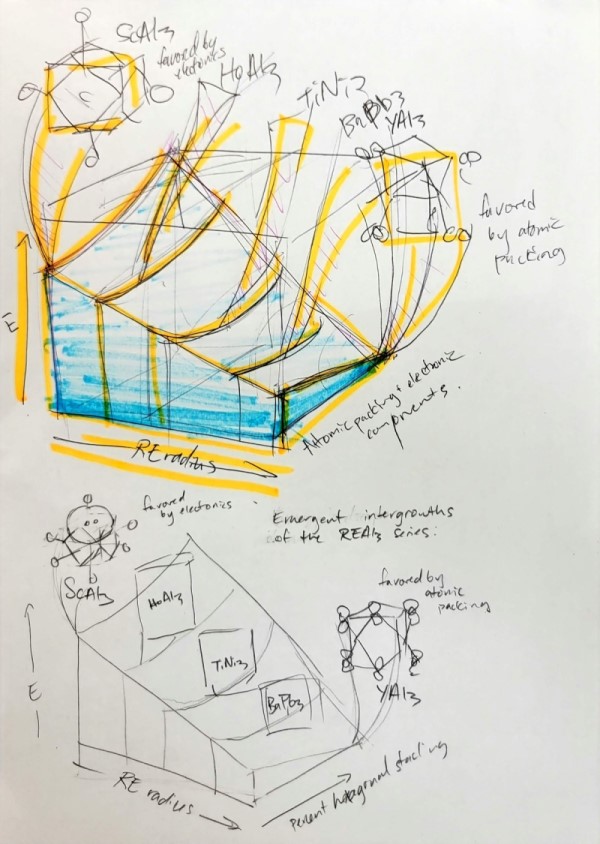 ScAl3
favored by
electronics
HoAl3
TiNi3
BaPb3
YAl3
favored
by atomic
packing
E
RE radius
Atomic packing + electronic
components.
favored
by electronics
Emergent intergrowths
of the REAl3 series:
ScAl3
HoAl3
TiNi3
BaPb3
favored by
atomic
packing
YAl3
E
RE radius
percent hexagonal stacking